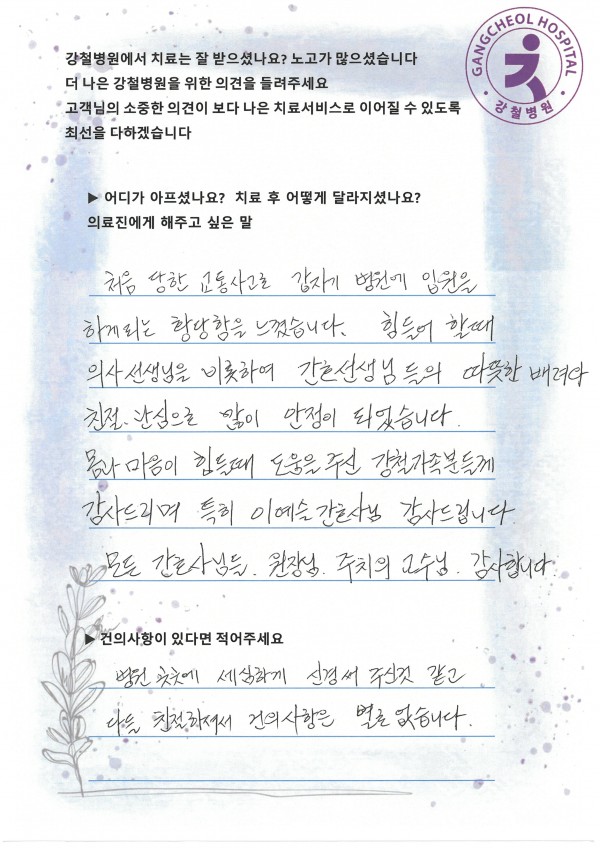 GANGCHEOL HOSPITAL
강철병원
강철병원에서 치료는 잘 받으셨나요? 노고가 많으셨습니다
더 나은 강철병원을 위한 의견을 들려주세요
고객님의 소중한 의견이 보다 나은 치료서비스로 이어질 수 있도록
최선을 다하겠습니다
▶ 어디가 아프셨나요? 치료 후 어떻게 달라지셨나요?
의료진에게 해주고 싶은 말
처음 당한 교통사고로 갑자기 병원에 입원을
하게되는 황당함을 느꼈습니다. 힘들어 할때
의사선생님을 비롯하여 간호선생님들의 따뜻한 배려와
친절. 관심으로 많이 안정이 되었습니다.
몸과 마음이 힘들때 도움을 주신 강철가족분들께
감사드리며 특히 이예슬간호사님 감사드립니다
모든 간호사님들. 원장님. 주치의 교수님. 감사합니다.
▶ 건의사항이 있다면 적어주세요
병원 곳곳에 세심하게 신경써 주신것 같고
다들 친절하져서 건의사항은 별로 없습니다.